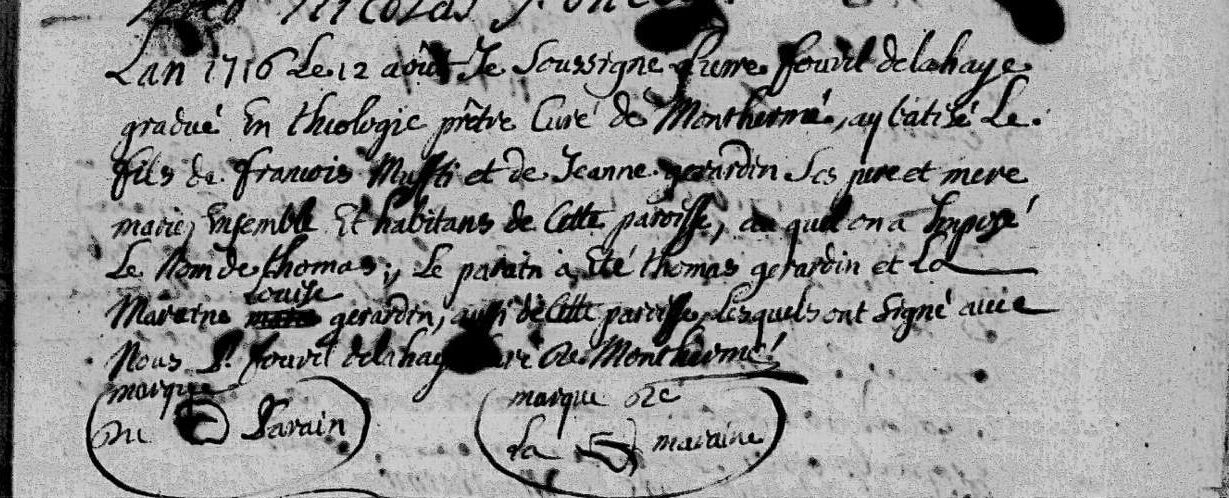 Nicolas
Lan 1716 Le 12 août Je Soussigné pierre fouril delahaye
gradué En théologie prêtre Curé de Monthermé, ay batisé Le
fils de francois et de Jeanne gerardin Ses pere et mere
mariez Ensemble Et habitans de Cette paroisse, au quel on a Imposé
Le Nom de thomas; Le parain a Eté thomas gerardin et La
Maraine louise gerardin, aussi de Cette paroisse, lesquels ont Signé avec
Nous P. fouril delahaye Curé de Monthermé
marque
du Parain
marque de
la maraine